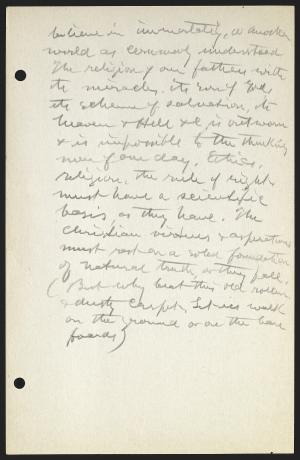 believe in immortality, or another
world as commonly understood
The religion of our fathers with
its miracles, its son of God,
its scheme of salvation, its
heaven & Hell &c, is outworn
& is impossible to the thinking
men of our day. Ethics,
religion, the rule of right
must have a scientific
basis, as they have. The
Christian virtues & aspirations
must rest on a solid foundation
of natural truth, or they fall.
(But why beat this old rotten
& dusty carpet, Let us walk
on the ground or on the bare
boards)